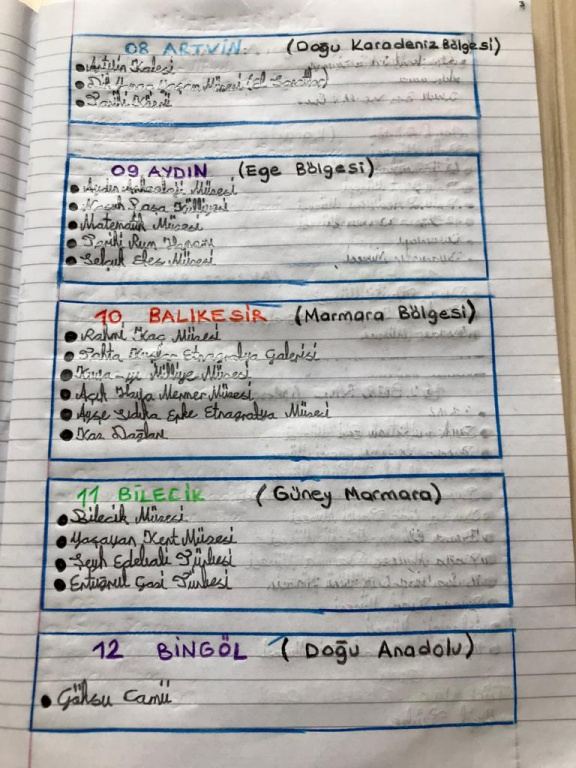 08 ARTVİN (Doğu Karadeniz Bölgesi)
Artvin Kalesi
Müzesi
Tarihi
09 AYDIN (Ege Bölgesi)
Aydın Arkeoloji Müzesi
Paşa Külliyesi
Matematik Müzesi
Tarihi Rum
Selçuk Efes Müzesi
10 BALIKESİR (Marmara Bölgesi)
Rahmi Koç Müzesi
Tahta Kuşlar Etnografya Galerisi
Kuva-yi Milliye Müzesi
Açık Hava Mermer Müzesi
Ayşe Sıdıka Erke Etnografya Müzesi
Kaz Dağları
11 BİLECİK (Güney Marmara)
Bilecik Müzesi
Yaşayan Kent Müzesi
Şeyh Edebali Türbesi
Ertuğrul Gazi Türbesi
12 BİNGÖL (Doğu Anadolu)
Göksu Camii